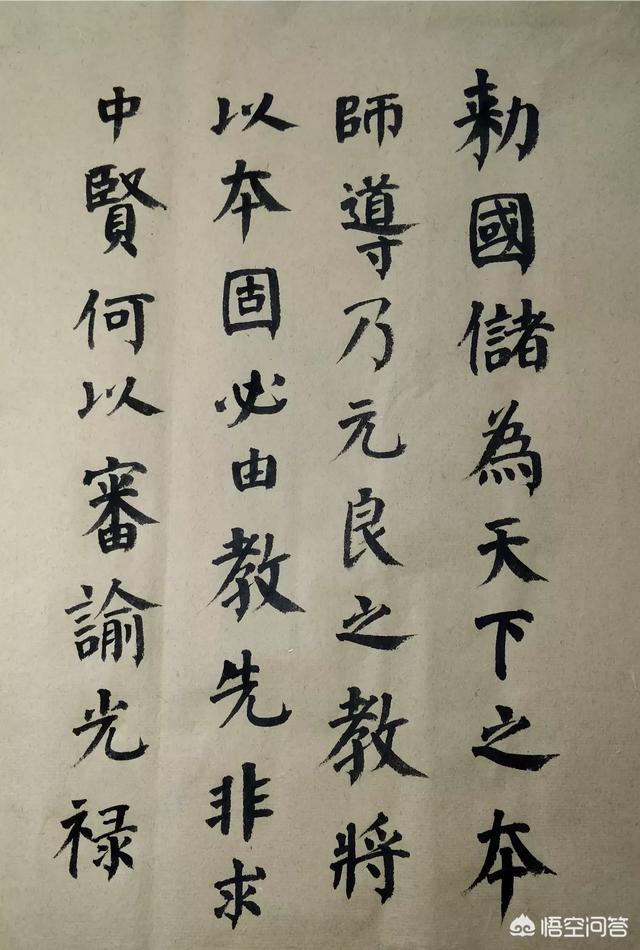 勅國儲為天下之本
師導乃元良之教將
以本固必由教先非求
中賢何以審諭光禄
悟空问答